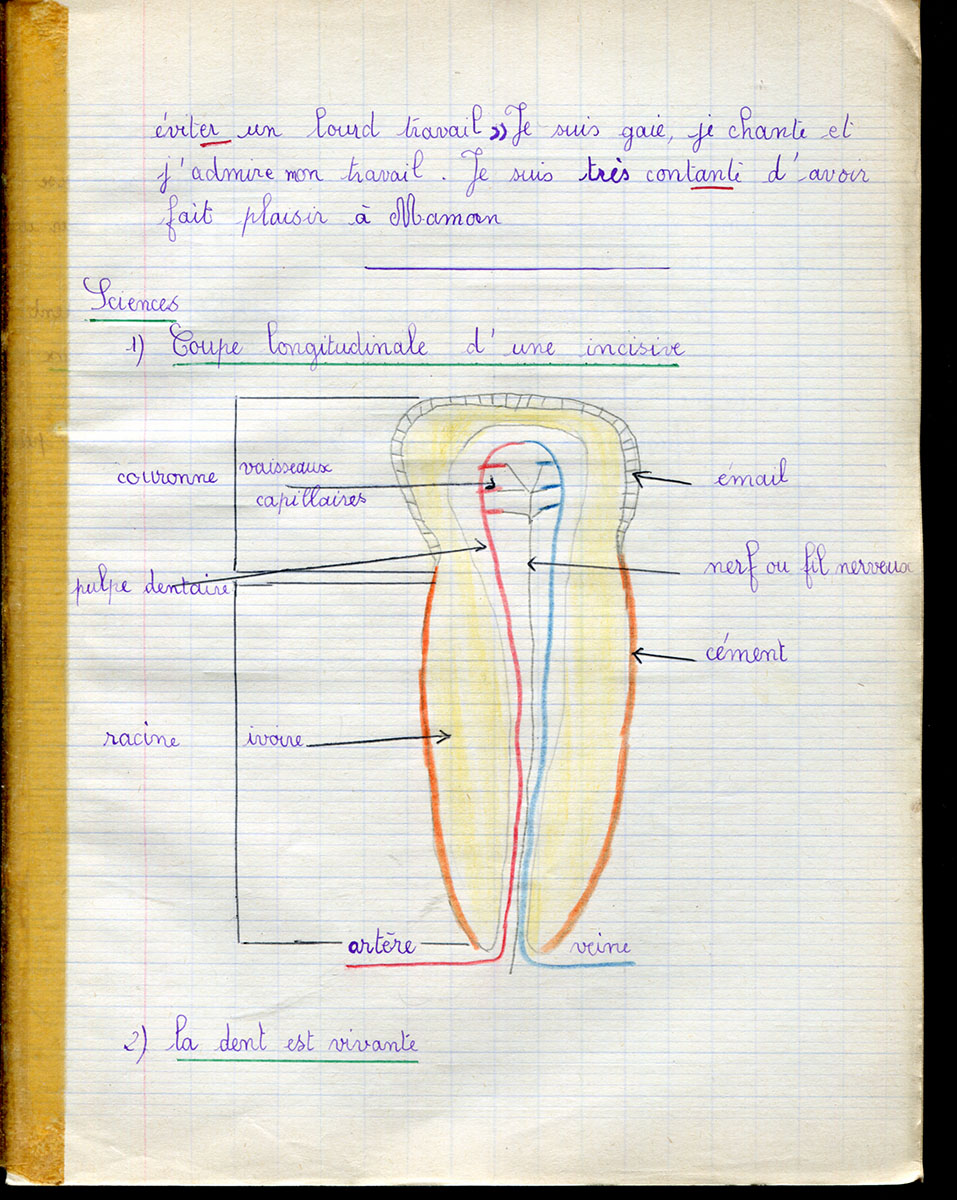 éviter un lourd travail » Je suis gaie, je chante et
j'admire mon travail. Je suis très contante d'avoir
fait plaisir à Maman
Sciences
1) Coupe longitudinale d'une incisive
couronne
vaisseaux
capillaires
émail
pulpe dentaire
nerf ou fil nerveux
cément
racine
ivoire
artère
veine
2) la dent est vivante